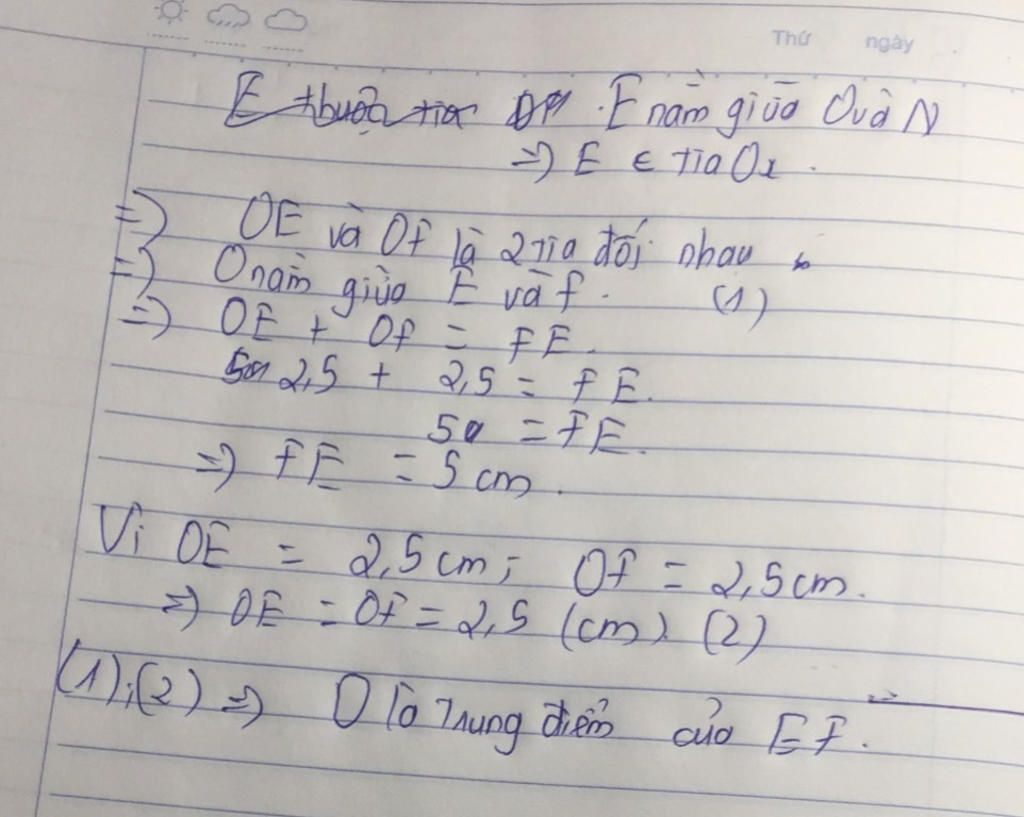 Thứ ngày
E thuộc tia E nằm giữa O và N
=) E ∈ Tia Ox.
=) OE và OF là 2 Tia đối nhau
=) O nằm giữa E và F. (1)
=) OE + OF = FE.
2,5 + 2,5 = FE.
5 = FE.
=) FE = 5 cm.
Vì OE = 2,5 cm; OF = 2,5 cm.
=) OE = OF = 2,5 (cm) (2)
(1);(2) =) O là Trung điểm của EF.